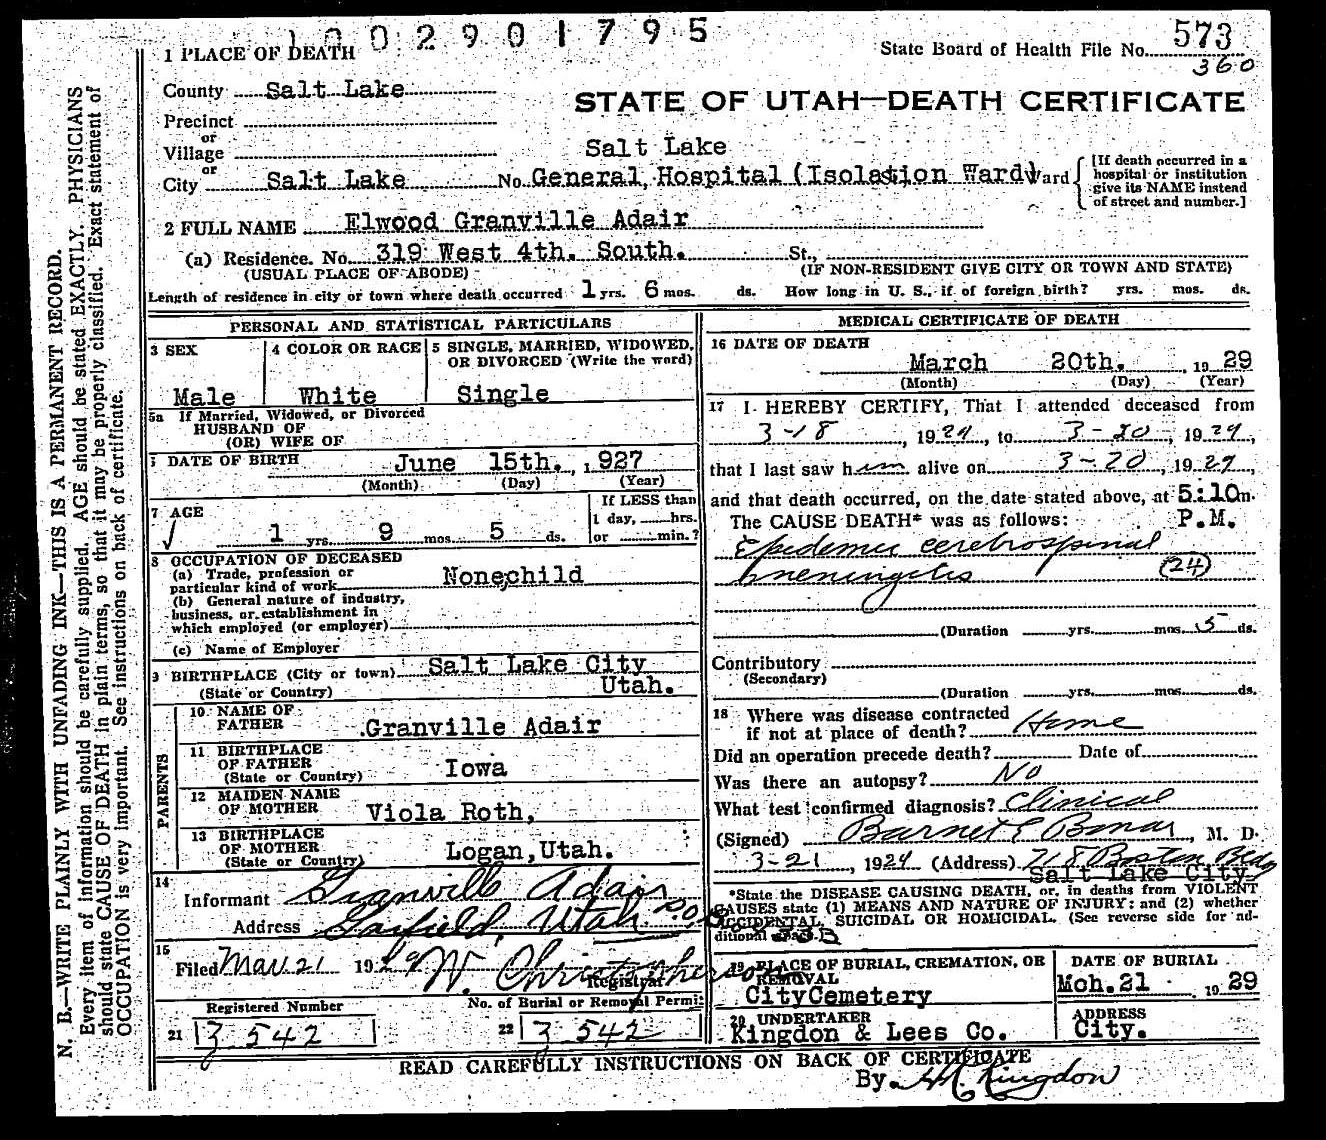 1002901795
1 PLACE OF DEATH
State Board of Health File No. 573
360
County Salt Lake
STATE OF UTAH—DEATH CERTIFICATE
Precinct
or
Village
or
Salt Lake
City Salt Lake No. General Hospital (Isolation Ward) Ward
[If death occurred in a
hospital or institution
give its NAME instead
of street and number.]
2 FULL NAME Elwood Granville Adair
(a) Residence. No. 319 West 4th. South. St.,
(USUAL PLACE OF ABODE) (IF NON-RESIDENT GIVE CITY OR TOWN AND STATE)
Length of residence in city or town where death occurred 1 yrs. 6 mos. ds. How long in U. S., if of foreign birth? yrs. mos. ds.
PERSONAL AND STATISTICAL PARTICULARS
3 SEX
Male
4 COLOR OR RACE
White
5 SINGLE, MARRIED, WIDOWED,
OR DIVORCED (Write the word)
Single
5a If Married, Widowed, or Divorced
HUSBAND OF
(OR) WIFE OF
DATE OF BIRTH June 15th., 1927
(Month) (Day) (Year)
7 AGE
1 yrs. 9 mos. 5 ds.
If LESS than
1 day, hrs.
or min.?
8 OCCUPATION OF DECEASED
(a) Trade, profession or
particular kind of work Nonechild
(b) General nature of industry,
business, or establishment in
which employed (or employer)
(c) Name of Employer
9 BIRTHPLACE (City or town) Salt Lake City
(State or Country) Utah.
PARENTS
10 NAME OF
FATHER Granville Adair
11 BIRTHPLACE
OF FATHER
(State or Country) Iowa
12 MAIDEN NAME
OF MOTHER Viola Roth,
13 BIRTHPLACE
OF MOTHER
(State or Country) Logan, Utah.
14
Informant Granville Adair
Address Garfield, Utah P.O.B.
15
Filed Mar. 21 1929 W. Christopherson
Registrar
Registered Number
21 3 542
No. of Burial or Removal Permit
22 3 542
MEDICAL CERTIFICATE OF DEATH
16 DATE OF DEATH
March 20th. , 1929
(Month) (Day) (Year)
17 I HEREBY CERTIFY, That I attended deceased from
3-18, 1929, to 3-20, 1929,
that I last saw him alive on 3-20, 1929,
and that death occurred, on the date stated above, at 5:10 m.
The CAUSE DEATH* was as follows: P.M.
Epidemic cerebrospinal
meningitis (24)
(Duration yrs. mos. 5 ds.
Contributory
(Secondary)
(Duration yrs. mos. ds.
18 Where was disease contracted
if not at place of death? Home
Did an operation precede death? Date of
Was there an autopsy? No
What test confirmed diagnosis? Clinical
(Signed) Barnet E Bonar, M. D.
3-21, 1929 (Address) 718 Boston Bldg
Salt Lake City
*State the DISEASE CAUSING DEATH, or, in deaths from VIOLENT
CAUSES state (1) MEANS AND NATURE OF INJURY: and (2) whether
ACCIDENTAL, SUICIDAL OR HOMICIDAL. (See reverse side for ad-
ditional space.)
19 PLACE OF BURIAL, CREMATION, OR
REMOVAL
City Cemetery
DATE OF BURIAL
Mch. 21 1929
20 UNDERTAKER
Kingdon & Lees Co.
ADDRESS
City.
READ CAREFULLY INSTRUCTIONS ON BACK OF CERTIFICATE
By. Kingdon
N. B.—WRITE PLAINLY WITH UNFADING INK—THIS IS A PERMANENT RECORD.
Every item of information should be carefully supplied. AGE should be stated EXACTLY. PHYSICIANS
should state CAUSE OF DEATH in plain terms, so that it may be properly classified. Exact statement of
OCCUPATION is very important. See instructions on back of certificate.